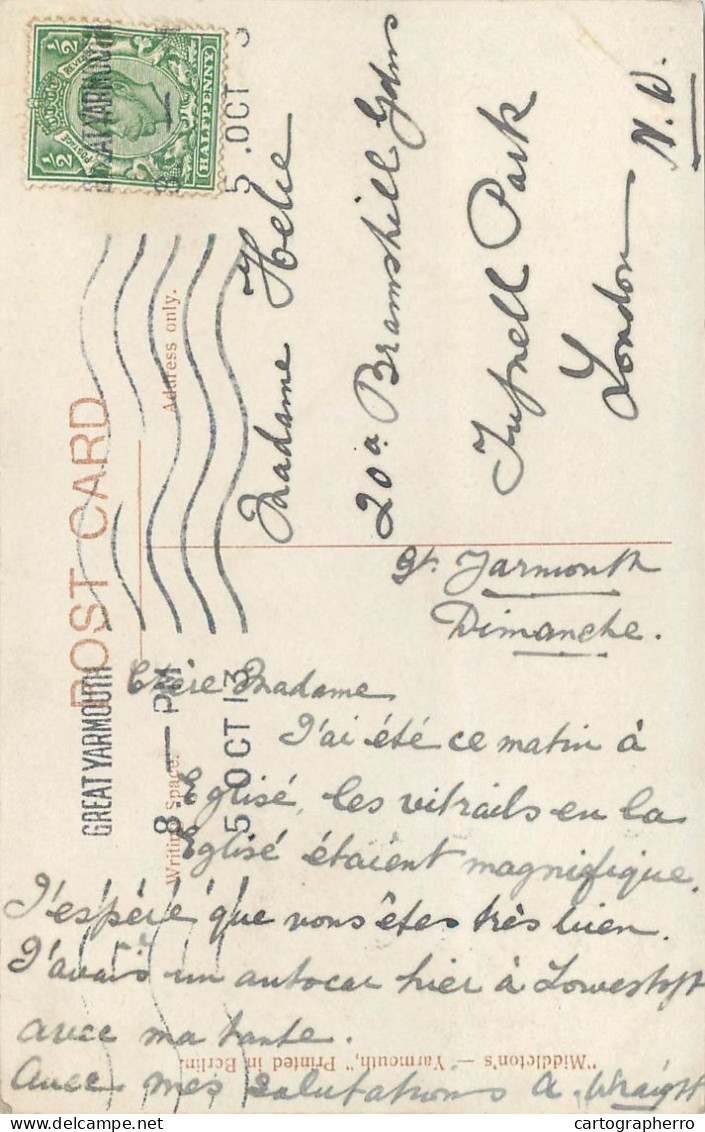 POST CARD
Writing Space.
Address only.
½ ½
POSTAGE REVENUE
HALFPENNY
GREAT YARMOUTH
8 — PM
5 OCT 13
GREAT YARMOUTH
8
5 .OCT
Madame Helie
20a Bramshill Gdns
Tufnell Park
London
N.W.
Gt. Yarmouth
Dimanche.
Chère Madame
J'ai été ce matin à
Eglisé, les vitrails en la
Eglisé étaient magnifique.
J'espéré que vous êtes très bien.
J'avais un autocar hier à Lowestoft
avec ma tante.
Avec mes salutations A. Wraight
"Middleton's — Yarmouth," Printed in Berlin.
cartographerro